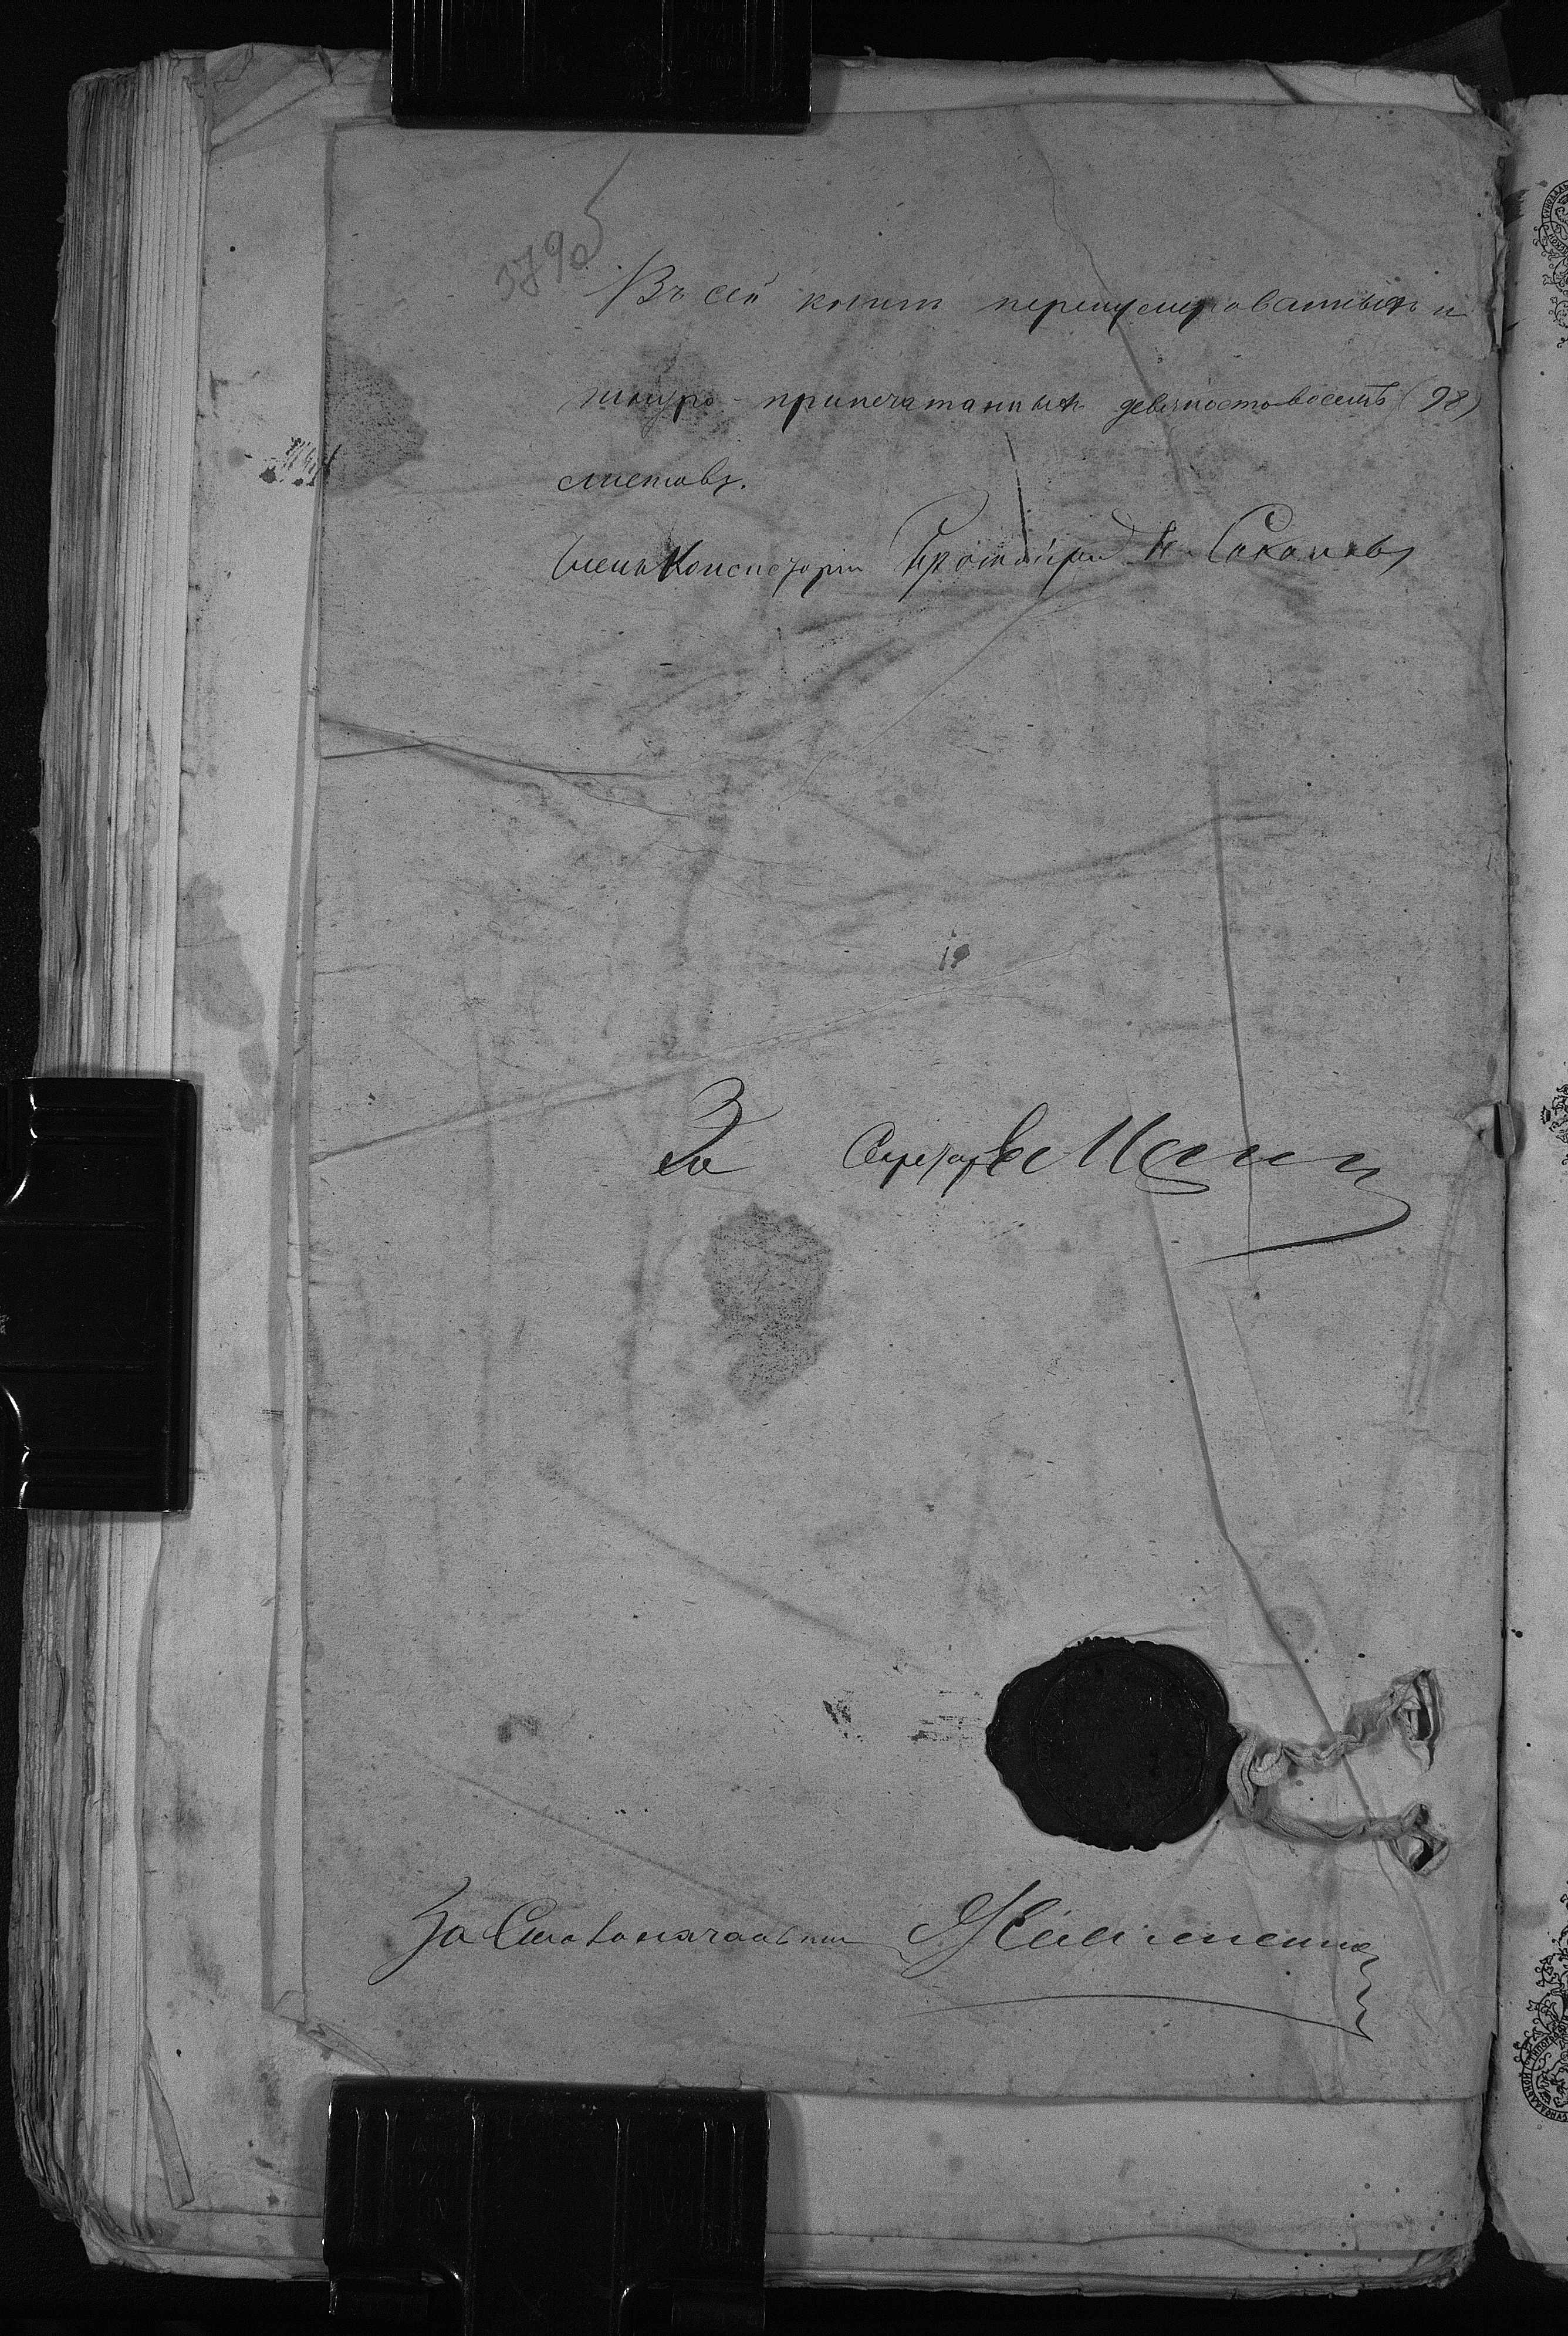 3795
Въ сей книгѣ перенумерованныхъ и
шнуро-припечатанныхъ девяносто восемь (98)
листовъ.
Членъ Консисторіи Протоіерей Соколовъ
За Секретаря
За Столоначальника